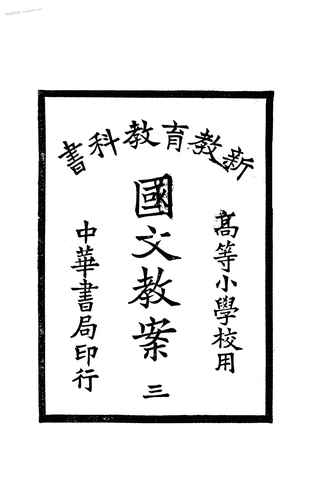 新教育教科書
高等小學校用
國文教案 三
中華書局印行